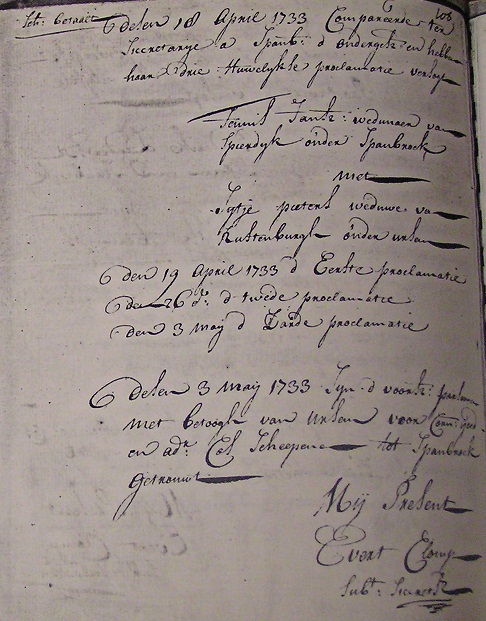 betaalt
108
desen 18 April 1733 Compareerde ter
Secretarye a Spanb: d ondergetz en hebbe
haar drie Huwelykse proclamatie versogt
Teunis Jantz: wedunaer van
Spierdyk onder Spanbroek
met
Tytje pieters weduwe van
Rustenburgh onder ursem
den 19 April 1733 d Eerste proclamatie
den 26 do: d twede proclamatie
den 3 maij d Darde proclamatie
desen 3 maij 1733 Syn d voorsz:
met betoogh van ursem voor Corn:
en adr: Col Scheepene tot Spanbroek
getrouwt
Mij Present
Evert Clomp
Subt: Secrets